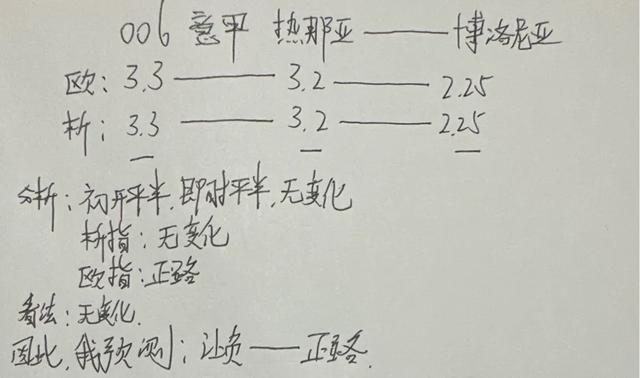 006 意甲 热那亚——博洛尼亚
欧: 3.3——3.2——2.25
析: 3.3——3.2——2.25
分析: 初开平半,即时平半,无变化
析指: 无变化
欧指: 正路
看法: 无变化.
因此,我预测: 让负——正路.